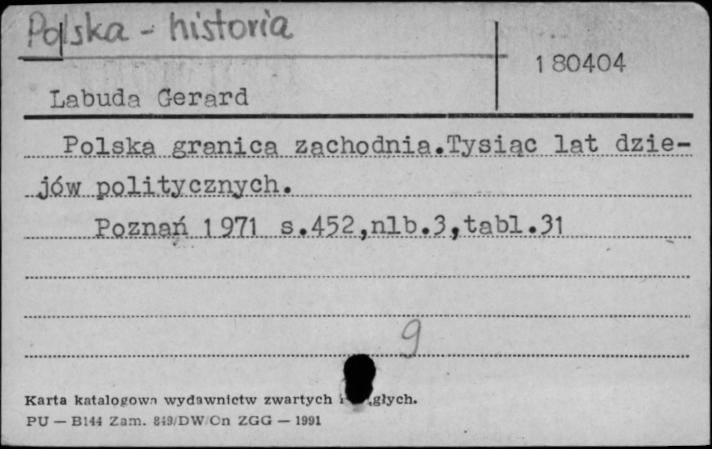 Polska - historia
180404
Labuda Gerard
Polska granica zachodnia.Tysiąc lat dzie-
jów politycznych.
Poznań 1971 s.452,nlb.3,tabl.31
9
Karta katalogowa wydawnictw zwartych głych.
PU — B144 Zam. 849/DW/Cn ZGG — 1991